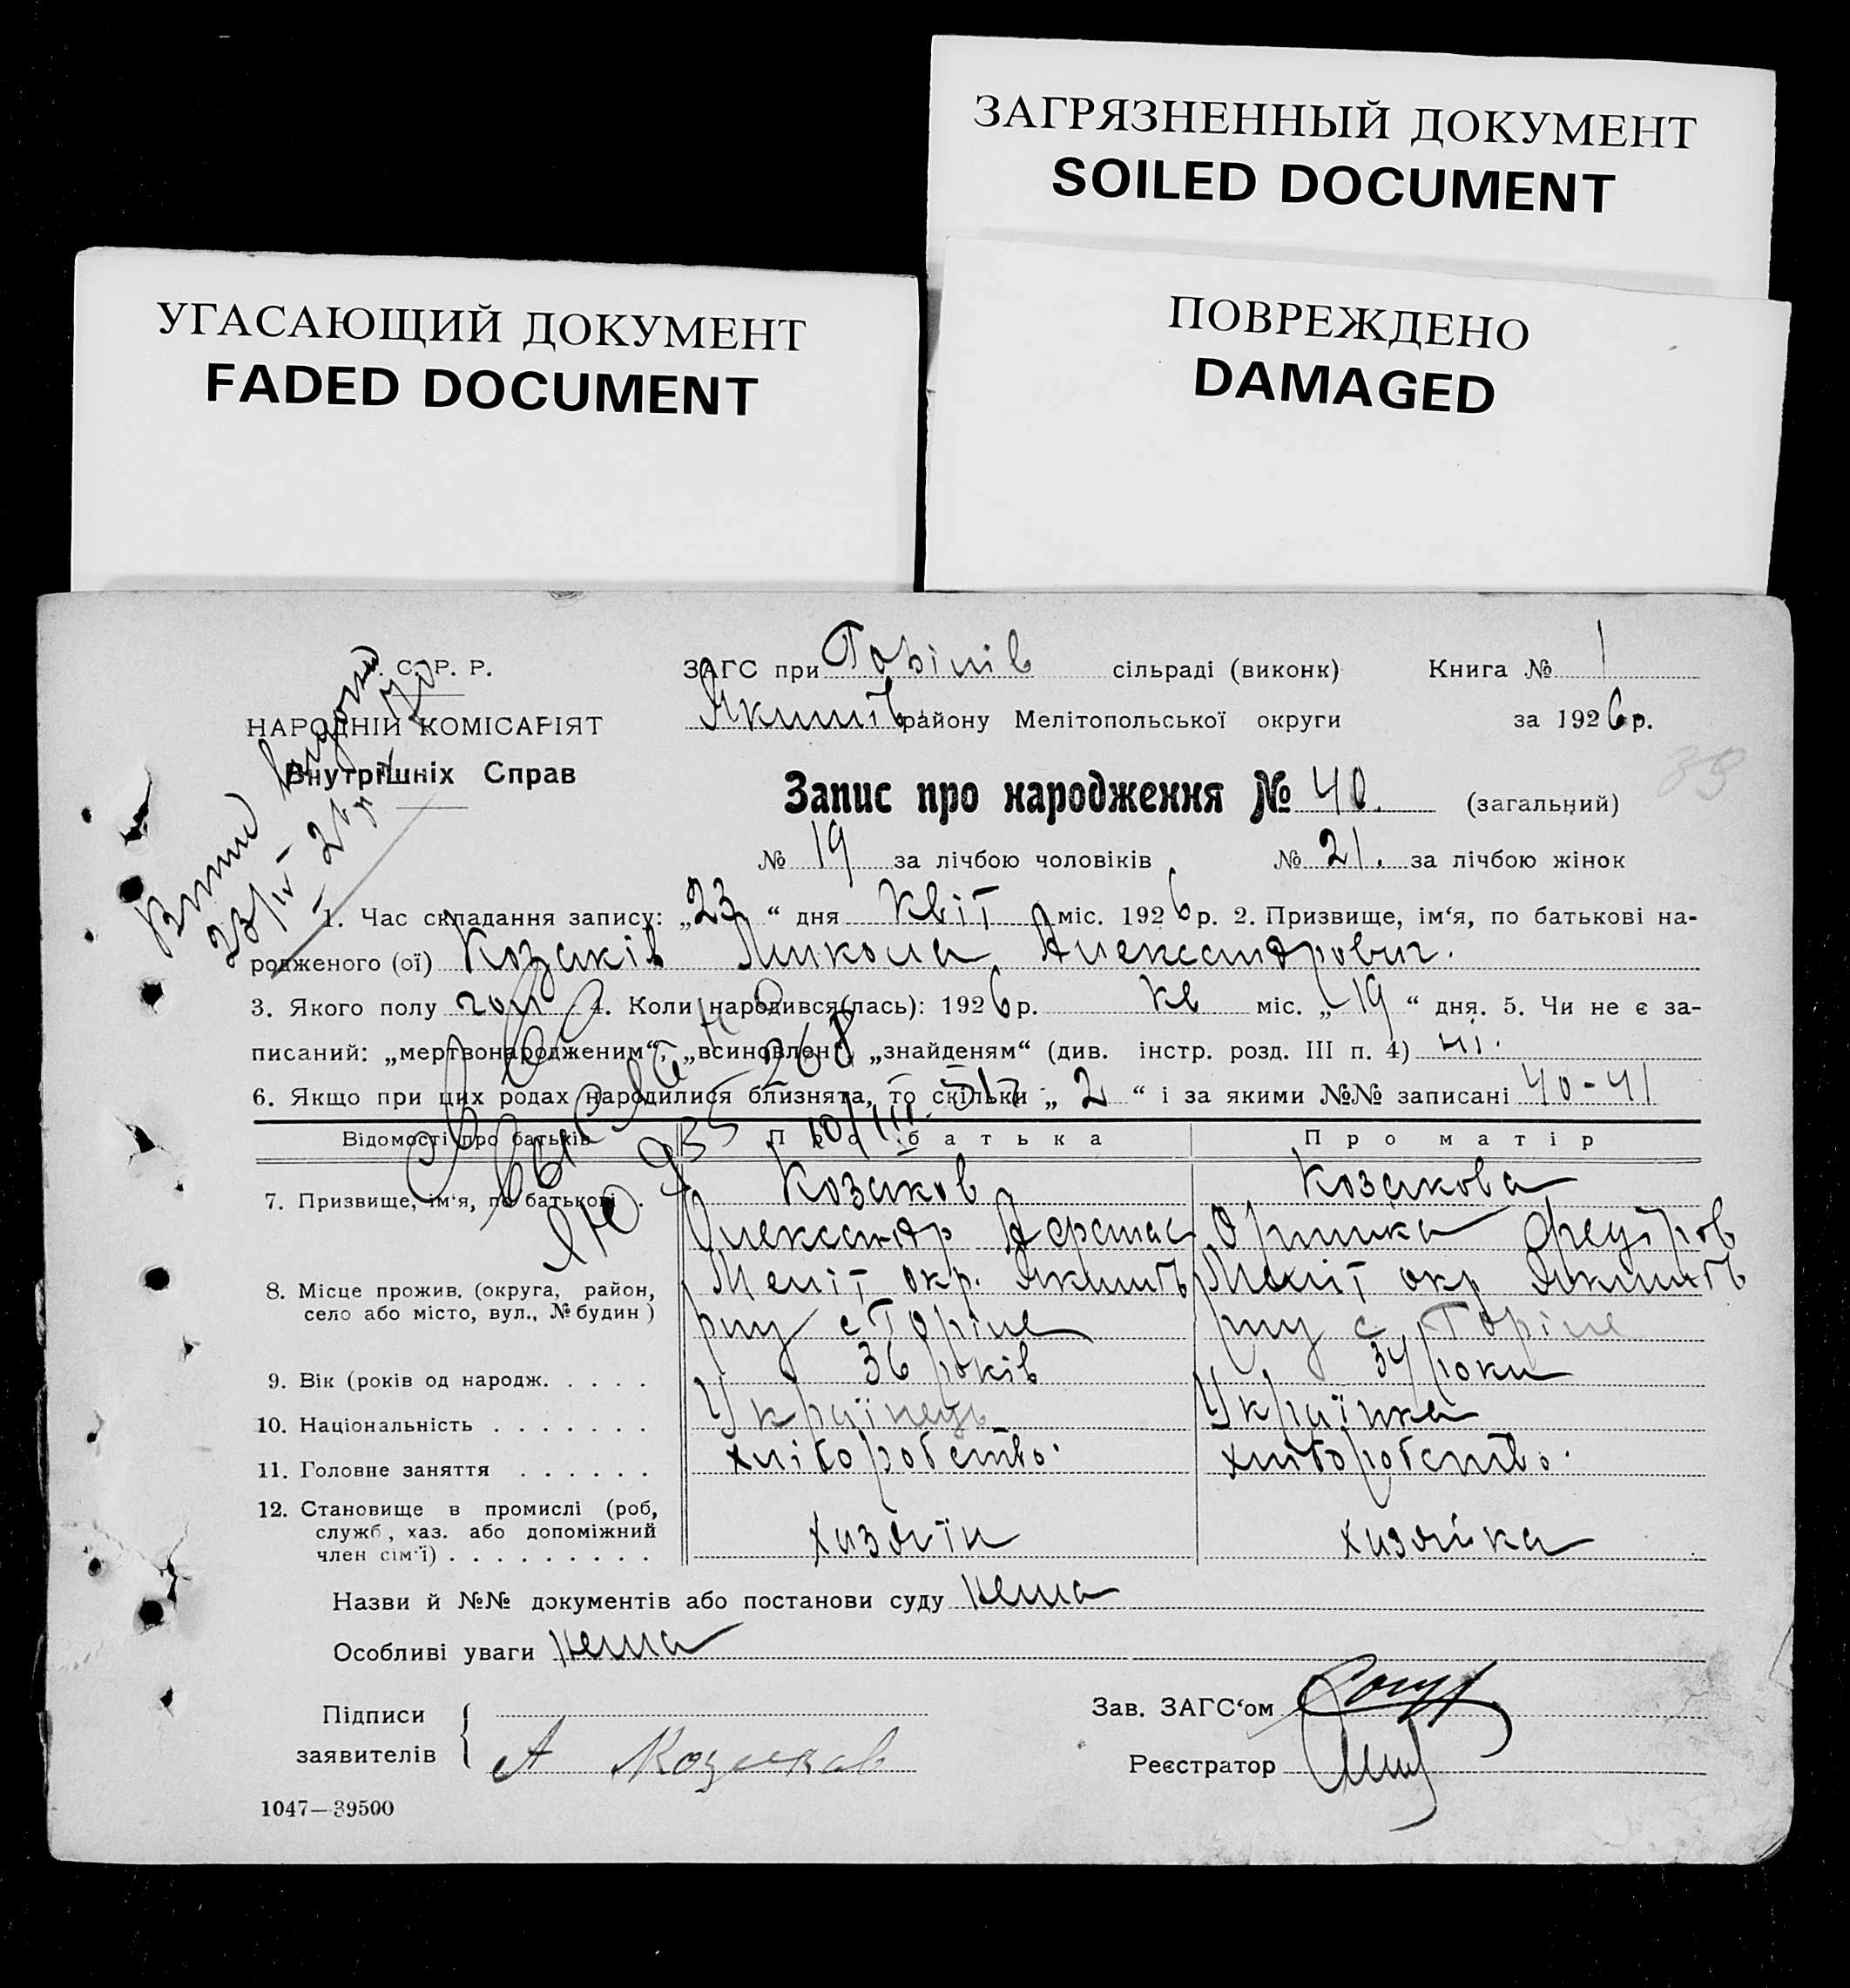 ЗАГРЯЗНЕННЫЙ ДОКУМЕНТ
SOILED DOCUMENT
УГАСАЮЩИЙ ДОКУМЕНТ
FADED DOCUMENT
ПОВРЕЖДЕНО
DAMAGED
С. Р. Р.
НАРОДНІЙ КОМІСАРІЯТ
Внутрішніх Справ
ЗАГС при сільраді (виконк) Книга № 1
Якимів району Мелітопольської округи за 1926 р.
Запис про народження № 40. (загальний)
№ 19 за лічбою чоловіків № 21. за лічбою жінок
1. Час складання запису: „23 “ дня Квіт міс. 1926 р. 2. Призвище, ім‘я, по батькові на-
родженого (ої) Козаків Микола Александрович.
3. Якого полу чол 4. Коли народився(лась): 1926 р. кв міс. „ 19 “ дня. 5. Чи не є за-
писаний: „мертвонародженим“, „всиновлен“, „знайденям“ (див. інстр. розд. III п. 4) ні.
6. Якщо при цих родах народилися близнята, то скільки „ 2 “ і за якими №№ записані 40-41
Відомості про батьків Про батька Про матір
7. Призвище, ім‘я, по батькові . Козаков Козакова
Олександр Афанас Оришка Федоров
8. Місце прожив. (округа, район,
село або місто, вул., № будин )
Меліт окр. Якимів Меліт окр Якимів
9. Вік (років од народж. . . . . 36 років 34 роки
10. Національність . . . . . . . Українець Українка
11. Головне заняття . . . . . . хліборобство. хліборобство.
12. Становище в промислі (роб,
служб, хаз. або допоміжний
член сім‘ї) . . . . . . . . . хазяїн хазяйка
Назви й №№ документів або постанови суду нема
Особливі уваги нема
Підписи
заявителів А Козаков
Зав. ЗАГС‘ом
Реєстратор
1047—39500